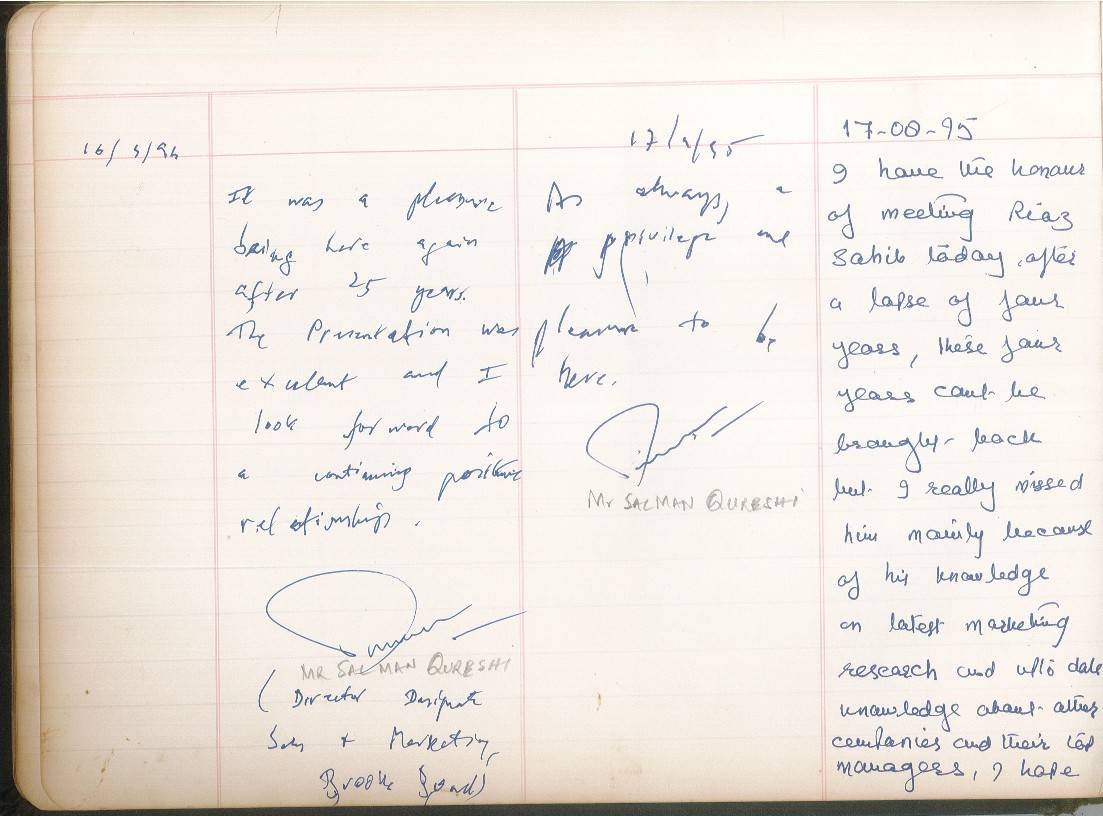 16/5/94
It was a pleasure
being here again
after 25 years.
The Presentation was
exulent and I
look forword to
a continuing positive
relationships.
MR SALMAN QURESHI
( Director Designate
Sales + Marketing,
Brooke Bond)
17/9/95
As always, a
privilege and
pleasure to be
here.
Mr SALMAN QURESHI
17-08-95
I have the honour
of meeting Riaz
Sahib today, after
a lapse of four
years, these four
years can't be
brought back
but I really missed
him mainly because
of his knowledge
on latest marketing
research and upto date
knowledge about other
companies and their top
managers, I hope